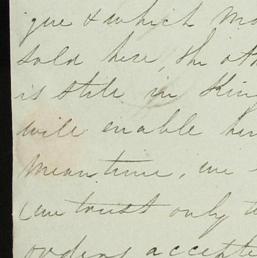 gue & which Ma
sold here, the oth
is still in Kin
will enable her
meantime, we
(we trust only t
orders accepte